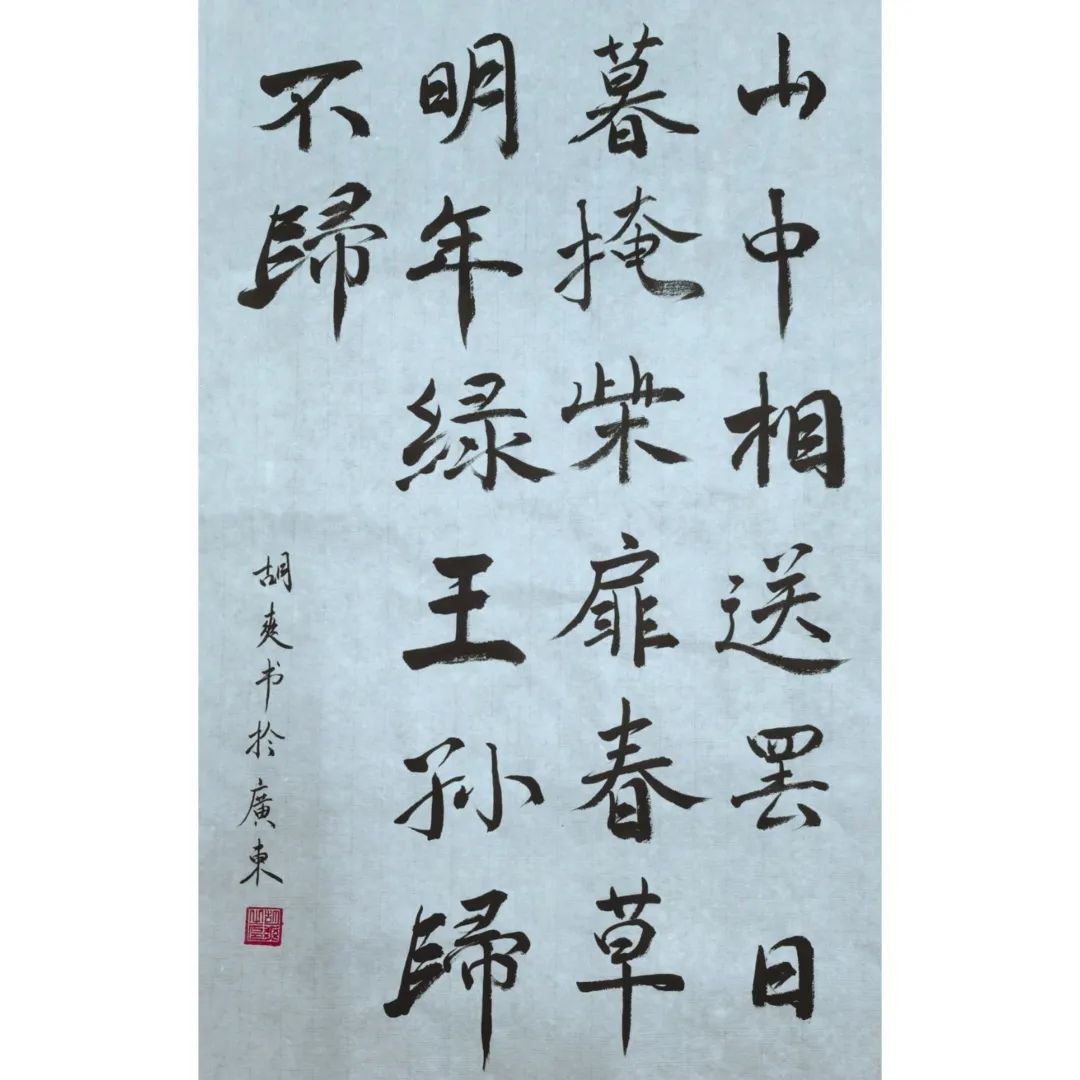 山中相送罢日
暮掩柴扉春草
明年緑王孙歸
不歸
胡爽书於廣東